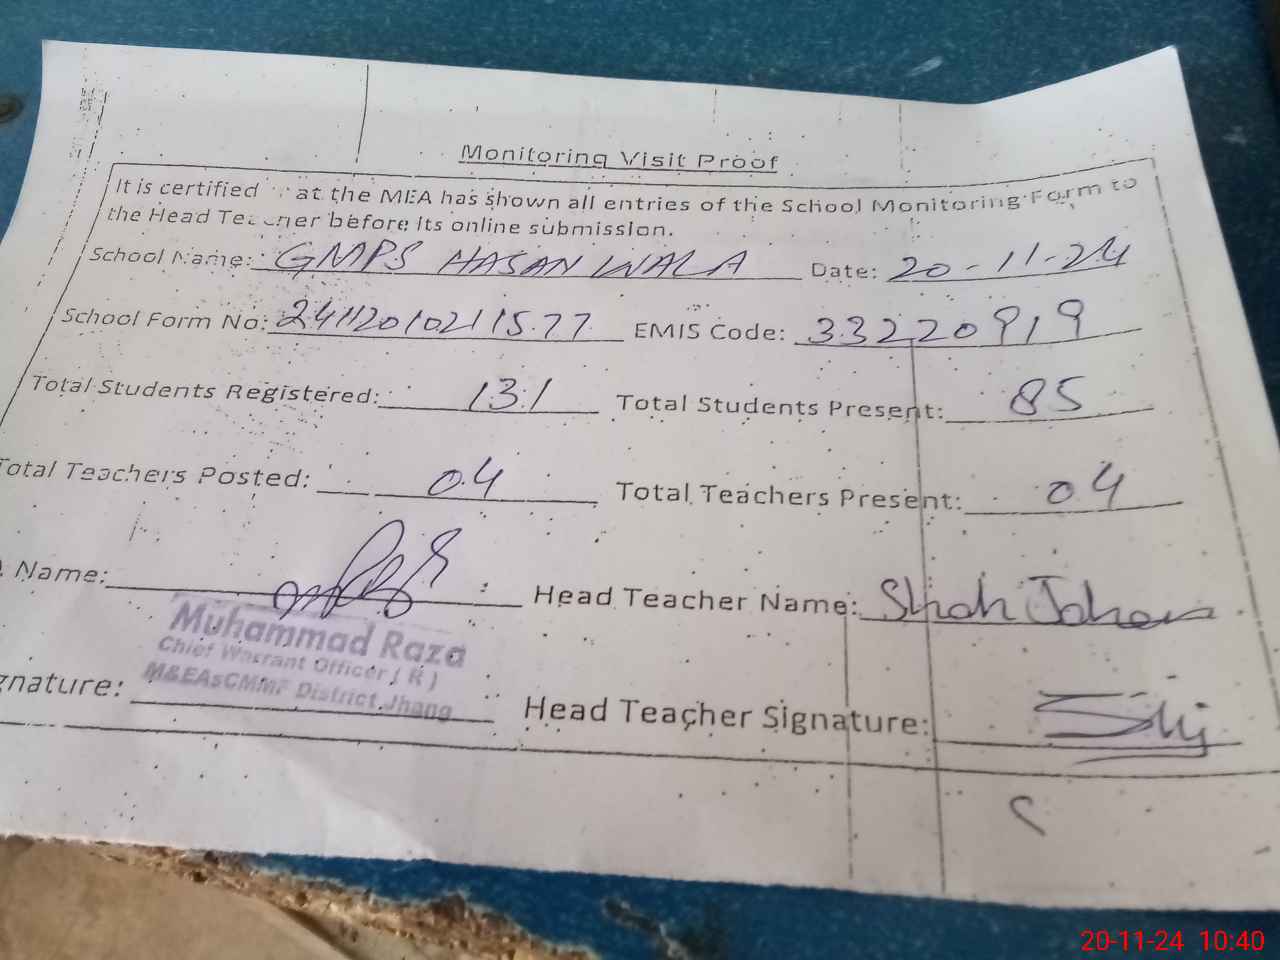 Monitoring Visit Proof
It is certified at the MEA has shown all entries of the School Monitoring Form to
the Head Teacher before its online submission.
School Name: GMPS HASAN WALA Date: 20-11-24
School Form No: 24112010211577 EMIS Code: 33220919
Total Students Registered: 131 Total Students Present: 85
Total Teachers Posted: 04 Total Teachers Present: 04
Name: Head Teacher Name: Shah Jahan
Muhammad Raza
Chief Warrant Officer ( R )
M&EAsCMMF District Jhang
gnature: Head Teacher Signature:
20-11-24 10:40